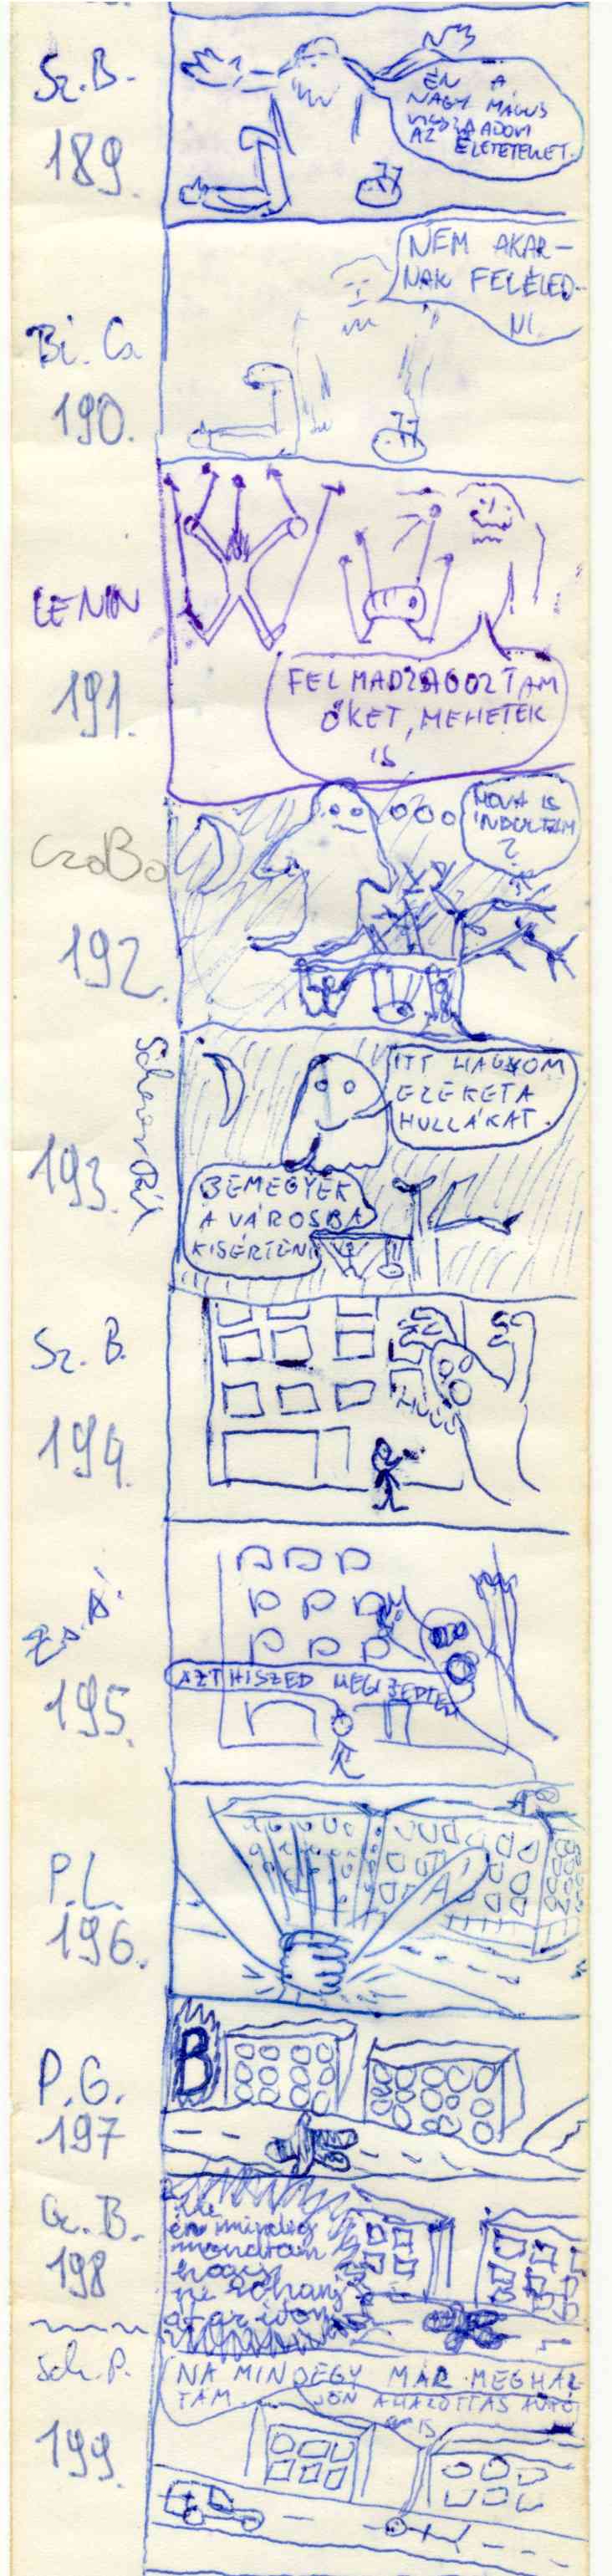 Sz. B.
189.
ÉN A
NAGY MÁGUS
VISSZAADOM
AZ ÉLETETEKET.
Bi. Cs.
190.
NEM AKAR-
NAK FELÉLED-
NI.
LENIN
191.
FELMADZAGOZTAM
ŐKET, MEHETEK
IS
CzoBo
192.
HOVA IS
INDULTAM
?
193.
ITT HAGYOM
EZEKET A
HULLÁKAT.
BEMEGYEK
A VÁROSBA
KISÉRTENI
Sz. B.
194.
195.
AZT HISZED MEGIJEDTEM
P.L.
196.
P.G.
197
B
198
én mindig
mondtam
hogy
ne rohanj
át az úton
Sch. P.
199.
NA MINDEGY MÁR MEGHAL-
TAM. JÖN A HALOTTAS AUTÓ
IS